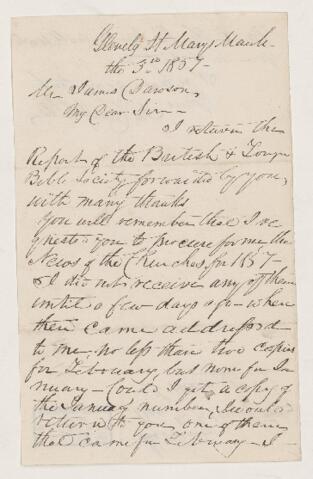 Glenelg St Marys March
the 3rd 1857 -
Mr James Dawson,
My Dear Sir -
I return the
Report of the British & Foreign
Bible Society forwarded by you,
with many thanks
You will remember that I re
quested you to procure for me the
News of the Churches for 1857 -
& I did not receive any of them
until a few days ago - when
then came addressed
to me no less than two copies
for February but none for Ja
nuary - Could I get a copy of
the January number I would
return to you one of them
that came for February - I -